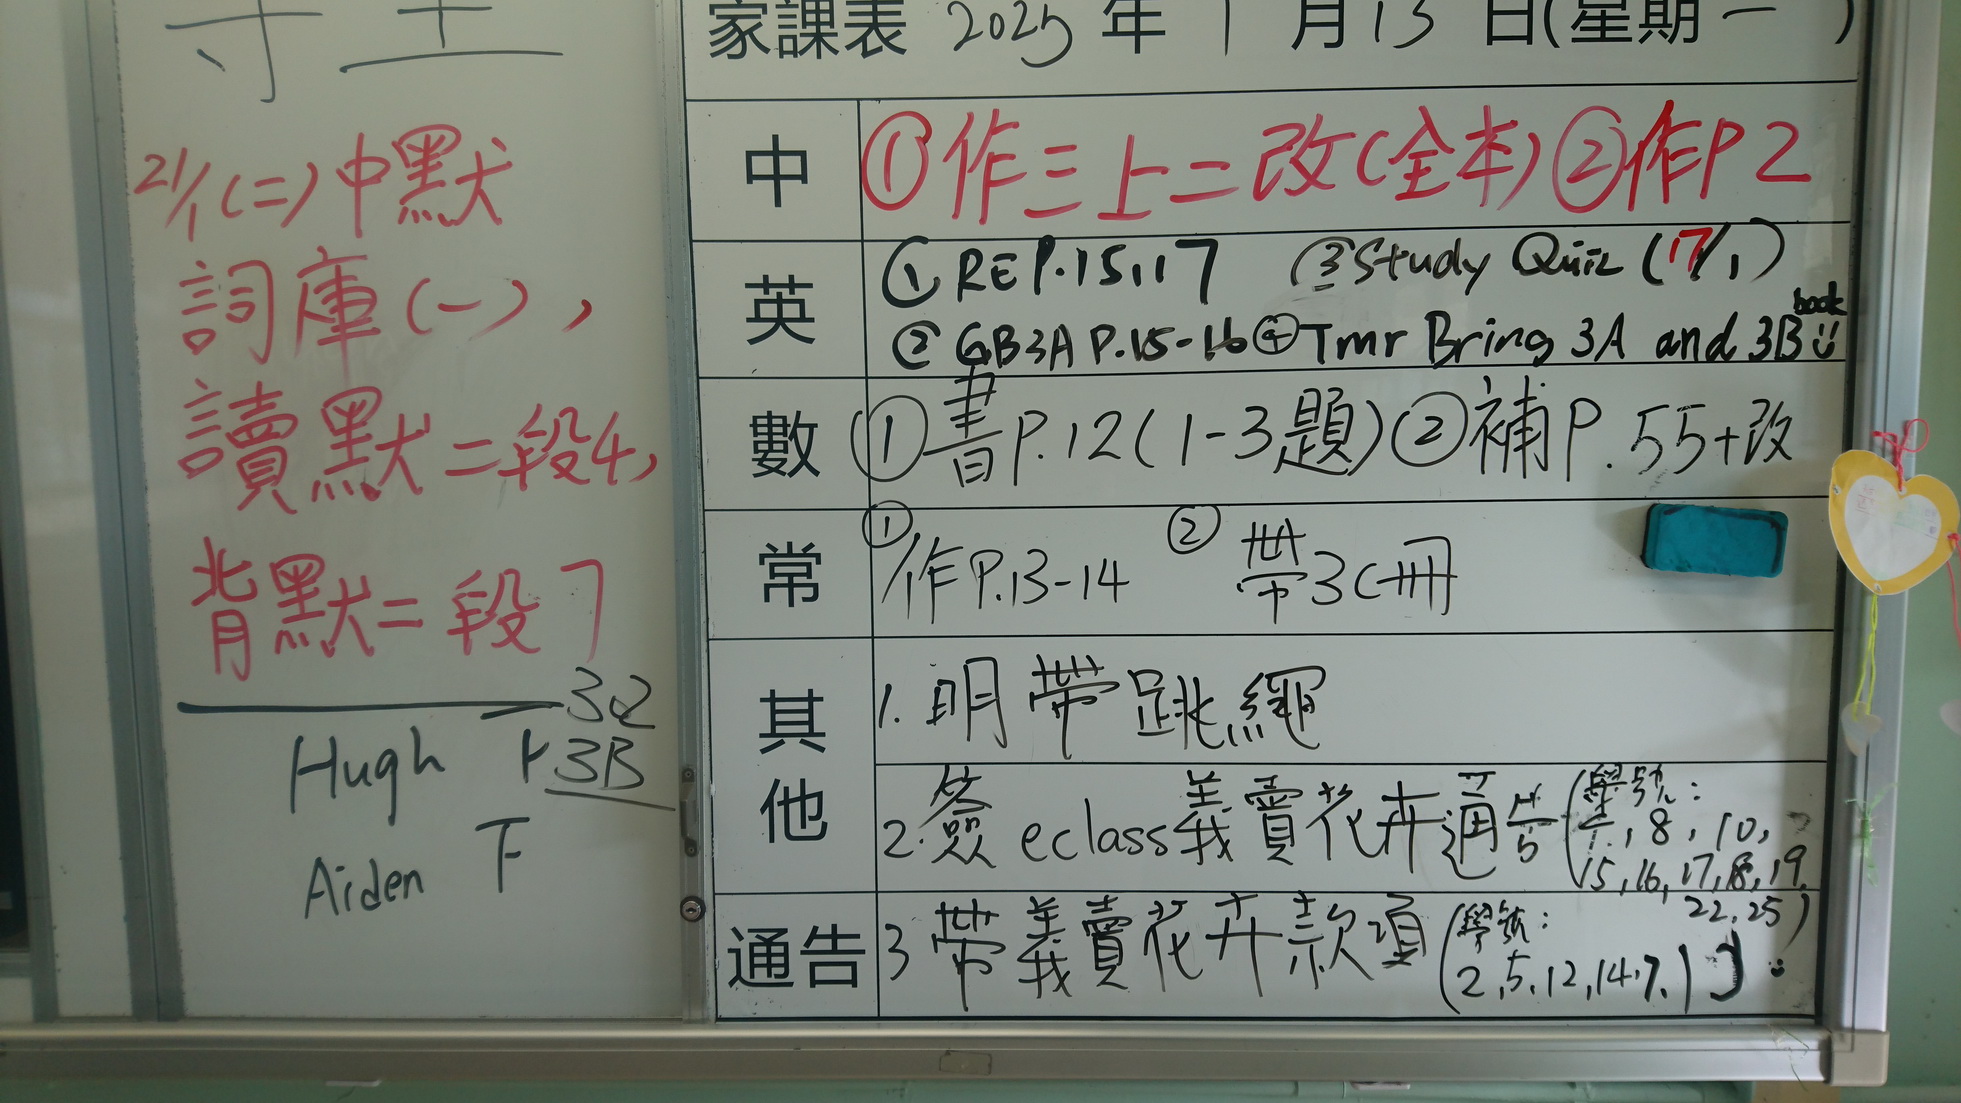 21/1(二)中默
詞庫(一),
讀默二段4,
背默二段7
32
Hugh
3B
Aiden
家課表 2025年1月13日(星期一)
中 ①作三上二改(全本)②作P2
英 ①RE P.15,17 ③Study Quiz (17/1)
②GB3A P.15-16 ④Tmr Bring 3A and 3B book
數 ①書P.12(1-3題)②補P.55+改
常 ①作P.13-14 ②帶3C冊
其他 1.明帶跳繩
2.簽eclass義賣花卉通告(學號:
8, 10,
15,16,17,18,19,
22,25)
通告 3 帶義賣花卉款項(學號:
2,5,12,14,7,1)